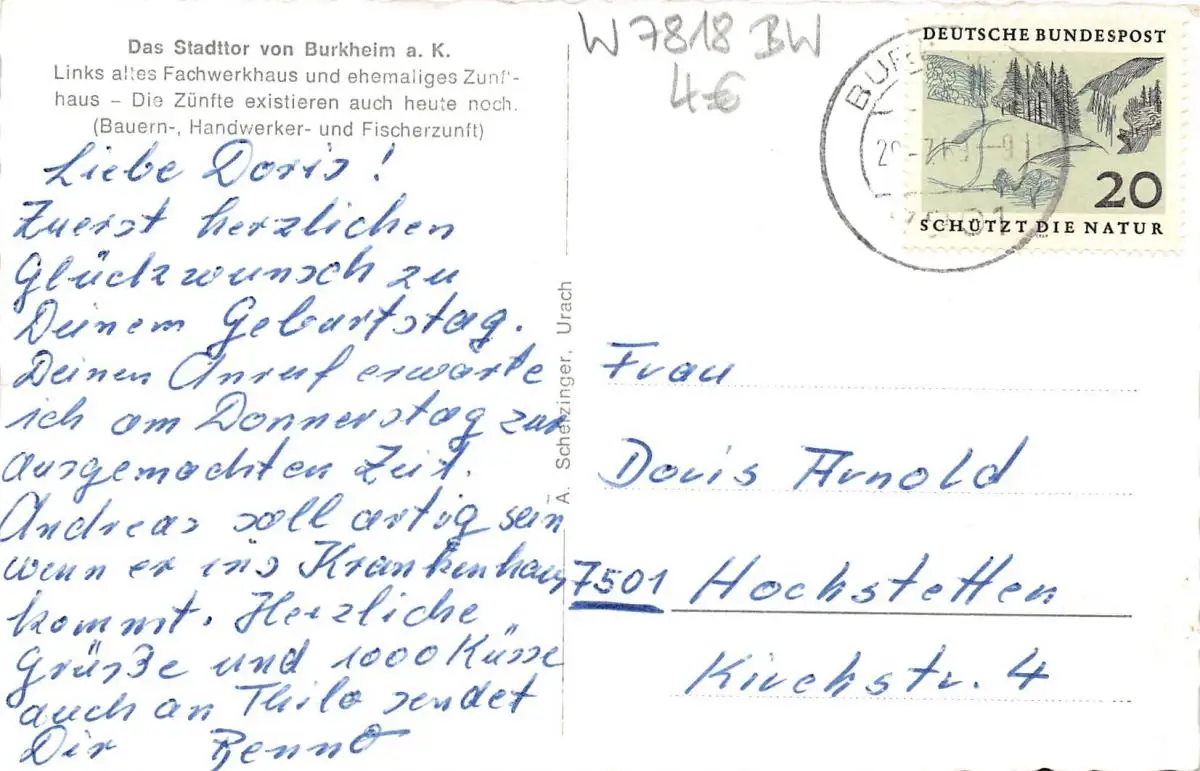 Das Stadttor von Burkheim a. K.
Links altes Fachwerkhaus und ehemaliges Zunft-
haus – Die Zünfte existieren auch heute noch.
(Bauern-, Handwerker- und Fischerzunft)
Liebe Doris!
Zuerst herzlichen
Glückwunsch zu
Deinem Geburtstag.
Deinen Anruf erwarte
ich am Donnerstag zur
ausgemachten Zeit.
Andreas soll artig sein
wenn er ins Krankenhaus
kommt. Herzliche
Grüße und 1000 Küsse
auch an Thilo sendet
Dir Benno
A. Scherzinger, Urach
W7818 BW
4€
DEUTSCHE BUNDESPOST
20
SCHÜTZT DIE NATUR
Frau
Doris Arnold
7501 Hochstetten
Kirchstr. 4